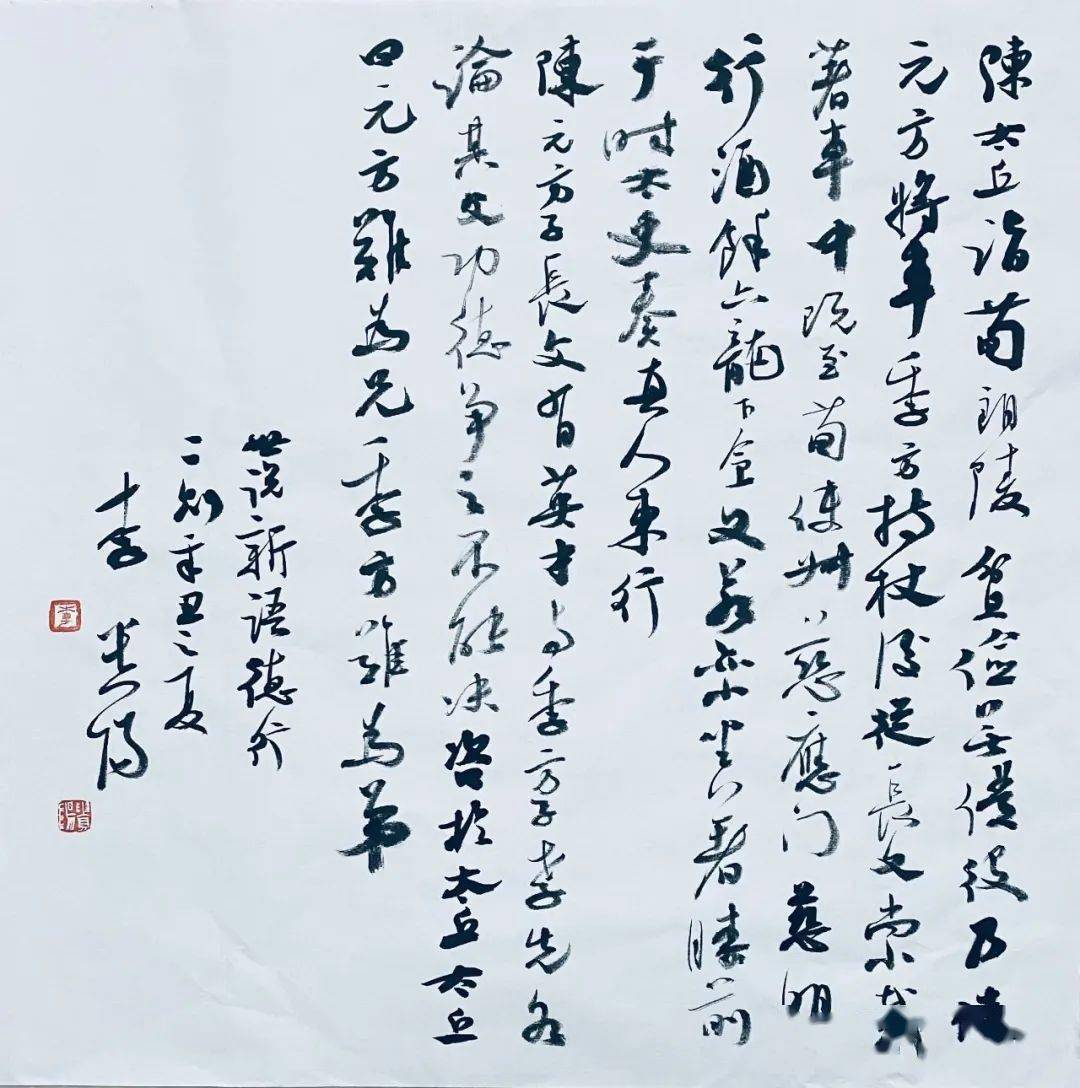 陳太丘詣荀朗陵貧儉無僕役乃使
元方將車季方持杖後從長文尚小載
著車中既至荀使叔慈應门慈明
行酒餘六龍下食文若亦小坐著膝前
于时太史奏真人東行
陳元方子長文有英才与季方子孝先各
論其父功德爭之不能决咨於太丘太丘
曰元方難為兄季方難為弟
世说新語德行
二則辛丑之夏
李
李